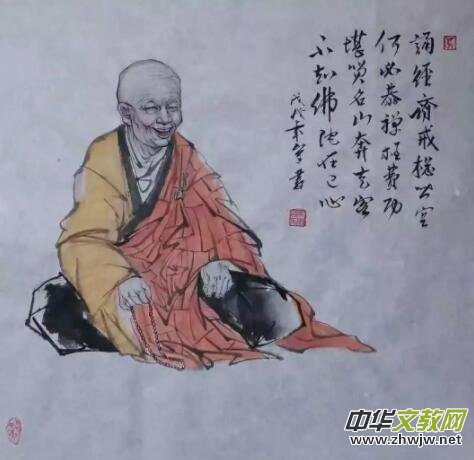 誦經齋戒總皆空
何必參禪枉費功
堪笑名山奔走客
不知佛陀在己心
戊戌年
中华文教网
www.zhwjw.net